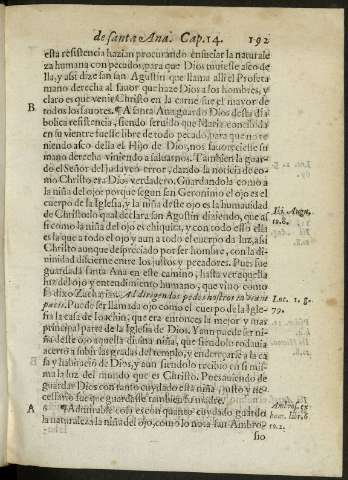 de santa Ana. Cap. 14. 192
esta resistencia hazian procurando ensuciar la naturale
za humana con pecados, para que Dios tuuiesse asco de
lla, y assi dize san san Agustin que llama alli el Profeta
mano derecha al fauor que haze Dios a los hombres, y
claro es que venir Christo en la carne fue el mayor de
B todos los fauores. ¶ A santa Ana guardo Dios desta dia
bolica resistencia, siendo seruido que Maria concebida
en su vientre fuesse libre de todo pecado, para que no te
niendo asco della el Hijo de Dios, nos fauoreciesse su
mano derecha viniendo a saluarnos. Tambien la guar-
do el Señor del judayco error, dando la noticia de co-
mo Christo era Dios verdadero. Guardandola como a
la niña del ojo: porque segun san Geronimo el ojo es el
cuerpo de la Iglesia, y la niña deste ojo es la humanidad
de Christo lo qual declara san Agustin diziendo, que as
si como la niña del ojo es chiquita, y con todo esso ella
es la que a todo el ojo y aun a todo el cuerpo da luz, assi
Christo aunque despreciado por ser hombre, con la di-
uinidad discierne entre los justos y pecadores. Pues fue
guardada santa Ana en este camino, hasta ver aquella
luz del ojo y entendimiento humano, que vino como
lo dixo Zacharias. Ad dirigendos pedes nostros in viam
pacis. Puede dezirse ojo como el cuerpo de la Igle-
sia la casa de Ioachin, que era entonces la mejor y mas
principal parte de la Iglesia de Dios. Y aun puede ser ni-
ña deste ojo aquella diuina niña, que siendolo todauia
acerto a subir las gradas del templo, y endereçarse a la ca
sa y habitacio de Dios, y aun siendolo recibio en si mis-
ma la luz del mundo que es Christo. Pues auiendo de
guardar Dios con tanto cuydado esta niña, justo y ne-
cessario fue que guardasse tambien su madre.
A 6 ¶ Admirable cosa es con quanto cuydado guardo
la naturaleza la niña del ojo, como lo nota san Ambro-
sio
Luc. 1. g.
79.
10.2.